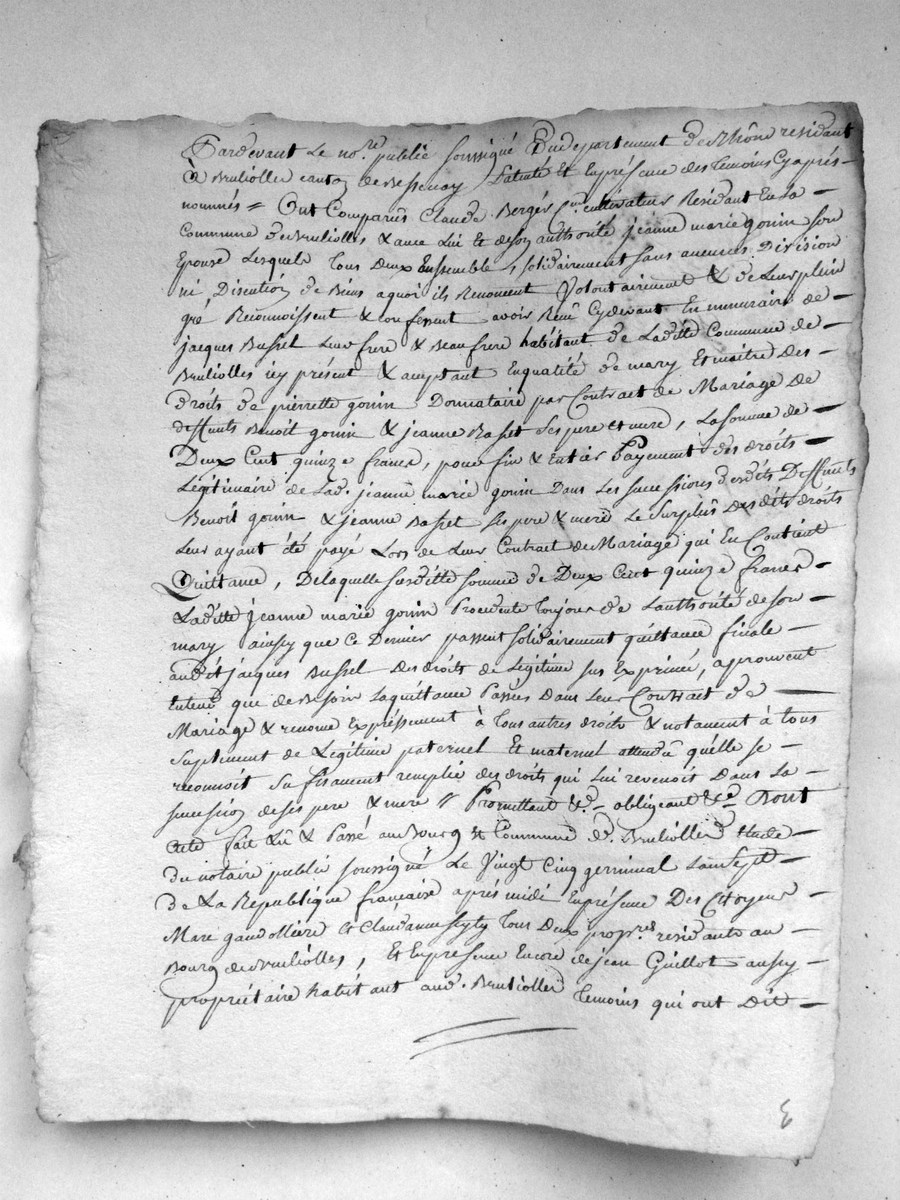 Pardevant Le nore. publié soussigné Dudepartement deRhône residant
à Brulioller canton de Bessenay patenté Et Enprésence des temoins Cyaprés-
nommés = Ont Comparüs Claude Berger cultivateur Residant En La -
Commune deBruliolles & avec Lui Et de son authorité jeanne marie gonin son
Epouse Lesquels tous deux Ensemble, solidairement sans aucunes Division
ni, Discution de Biens aquoi ils Renoncent Volontairement & de Leur plein
gré Reconnoissent & confessent avoir Recu Cydevant En numeraire de -
jacques Bussel Leur frere & Beaufrere habitant de Ladite Commune de -
Bruliolles icy présent & acceptant Enqualité de mary Et maitre des -
droits de pierrette gonin Donnataire par Contract de Mariage de
deffunts Benoit gonin & jeanne Basset ses pere et mere, La somme de -
Deux Cent quinze francs, pour fin & Entier Payement des droits -
Légitimaire de Lad. jeanne marie gonin Dans Les successions desdits Deffunts
Benoit gonin & jeanne Basset ses pere & mere Le Surplus desdits droits
Leur ayant été payé Lors de Leur Contract de Mariage qui En Contient
Quittance, De laquelle susditte somme de Deux Cent quinze francs -
Laditte jeanne marie gonin Procedente toujour de L'authorité de son -
mary ainsy que ce Dernier passent solidairement quittance finale -
audit jacques Bussel des droits de Légitime sus Exprimé, aprouvent
Entend que de Besoin Laquittance Passés Dans Leur Contract de -
Mariage & renonce Expréssement à tous autres droits & notament à tous
Suplement de Légitime paternel Et maternel attendu quélle se -
reconnoit Sufisament remplie des droits qui Lui revenoit Dans La -
succession de ses pere & mere // Promettant &a - obligeant &a - Dont
acte fait Lû & Passé au Bourg & Commune de Brulioller Etude -
Du notaire publié soussigné Le Vingt Cinq germinal Lan Sept -
de La Republique française aprés midi Enprésence Des Citoyens -
Marc gaudollière Et Claude tous Deux propres residants au -
Bourg de Bruliolles, Et Enpresence Encore de jean Guillot aussy -
propriétaire habitant aud. Brulioller temoins qui ont Dit -